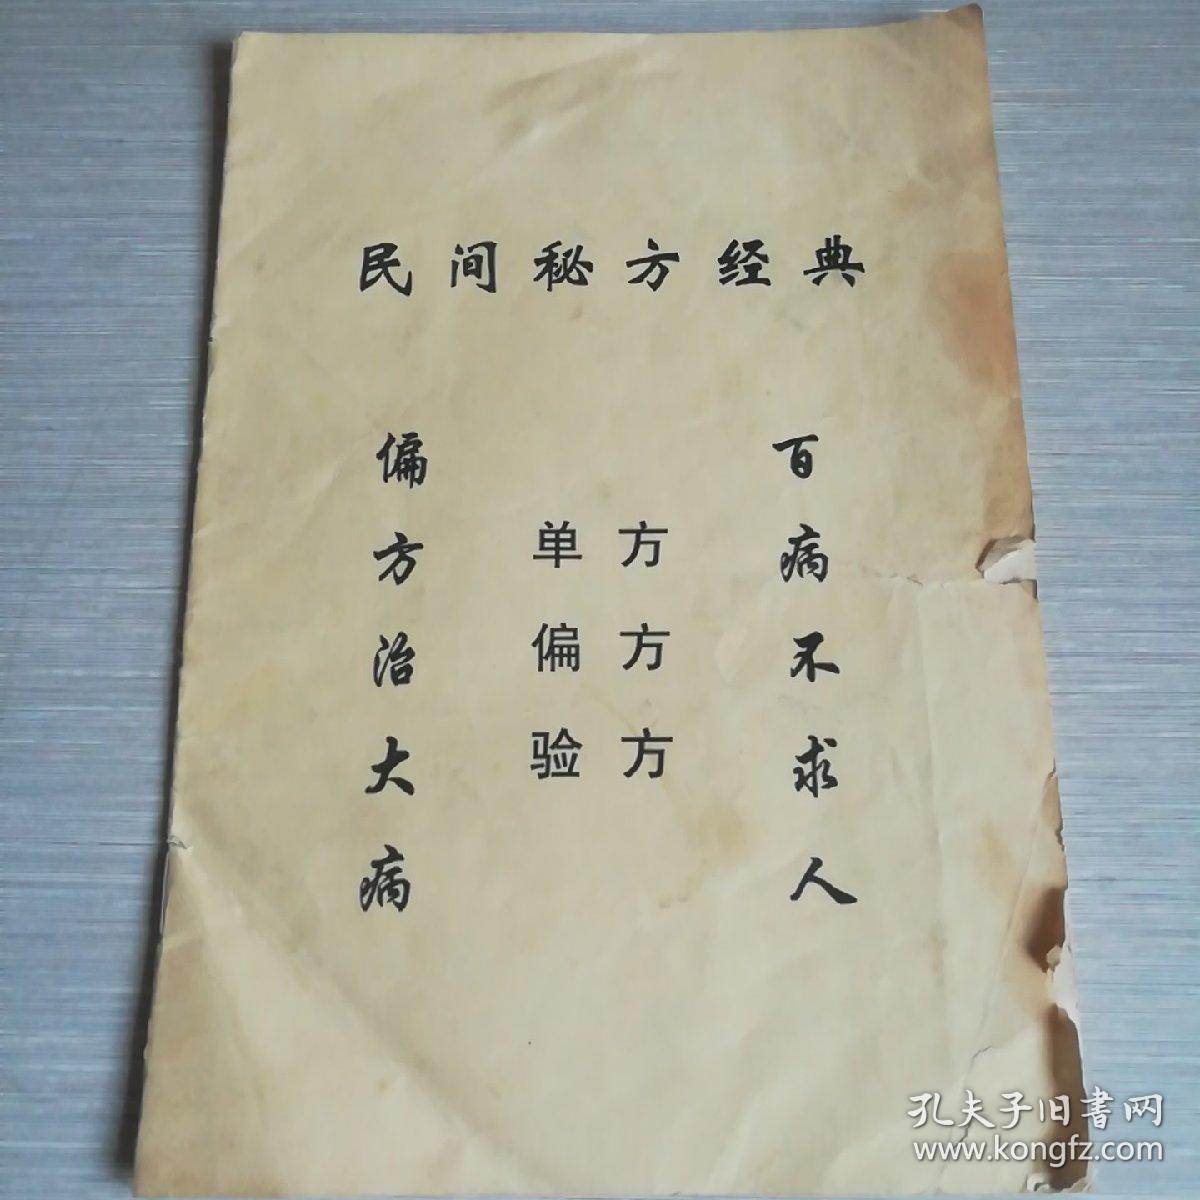 民间秘方经典
百病不求人
单方
偏方
验方
偏方治大病
孔夫子旧书网
www.kongfz.com